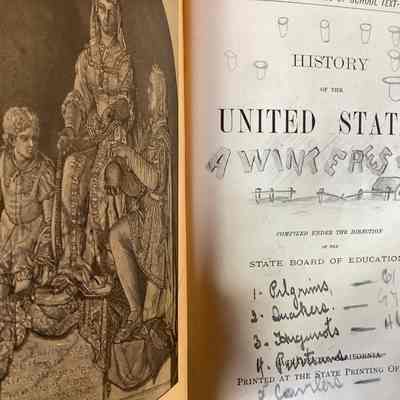 OF SCHOOL TEXT-
HISTORY
OF THE
UNITED STAT
A WINTER
COMPILED UNDER THE DIRECTION
OF THE
STATE BOARD OF EDUCATION
1- Pilgrims
2- Quakers
3-
4-
CALIFORNIA
PRINTED AT THE STATE PRINTING OF